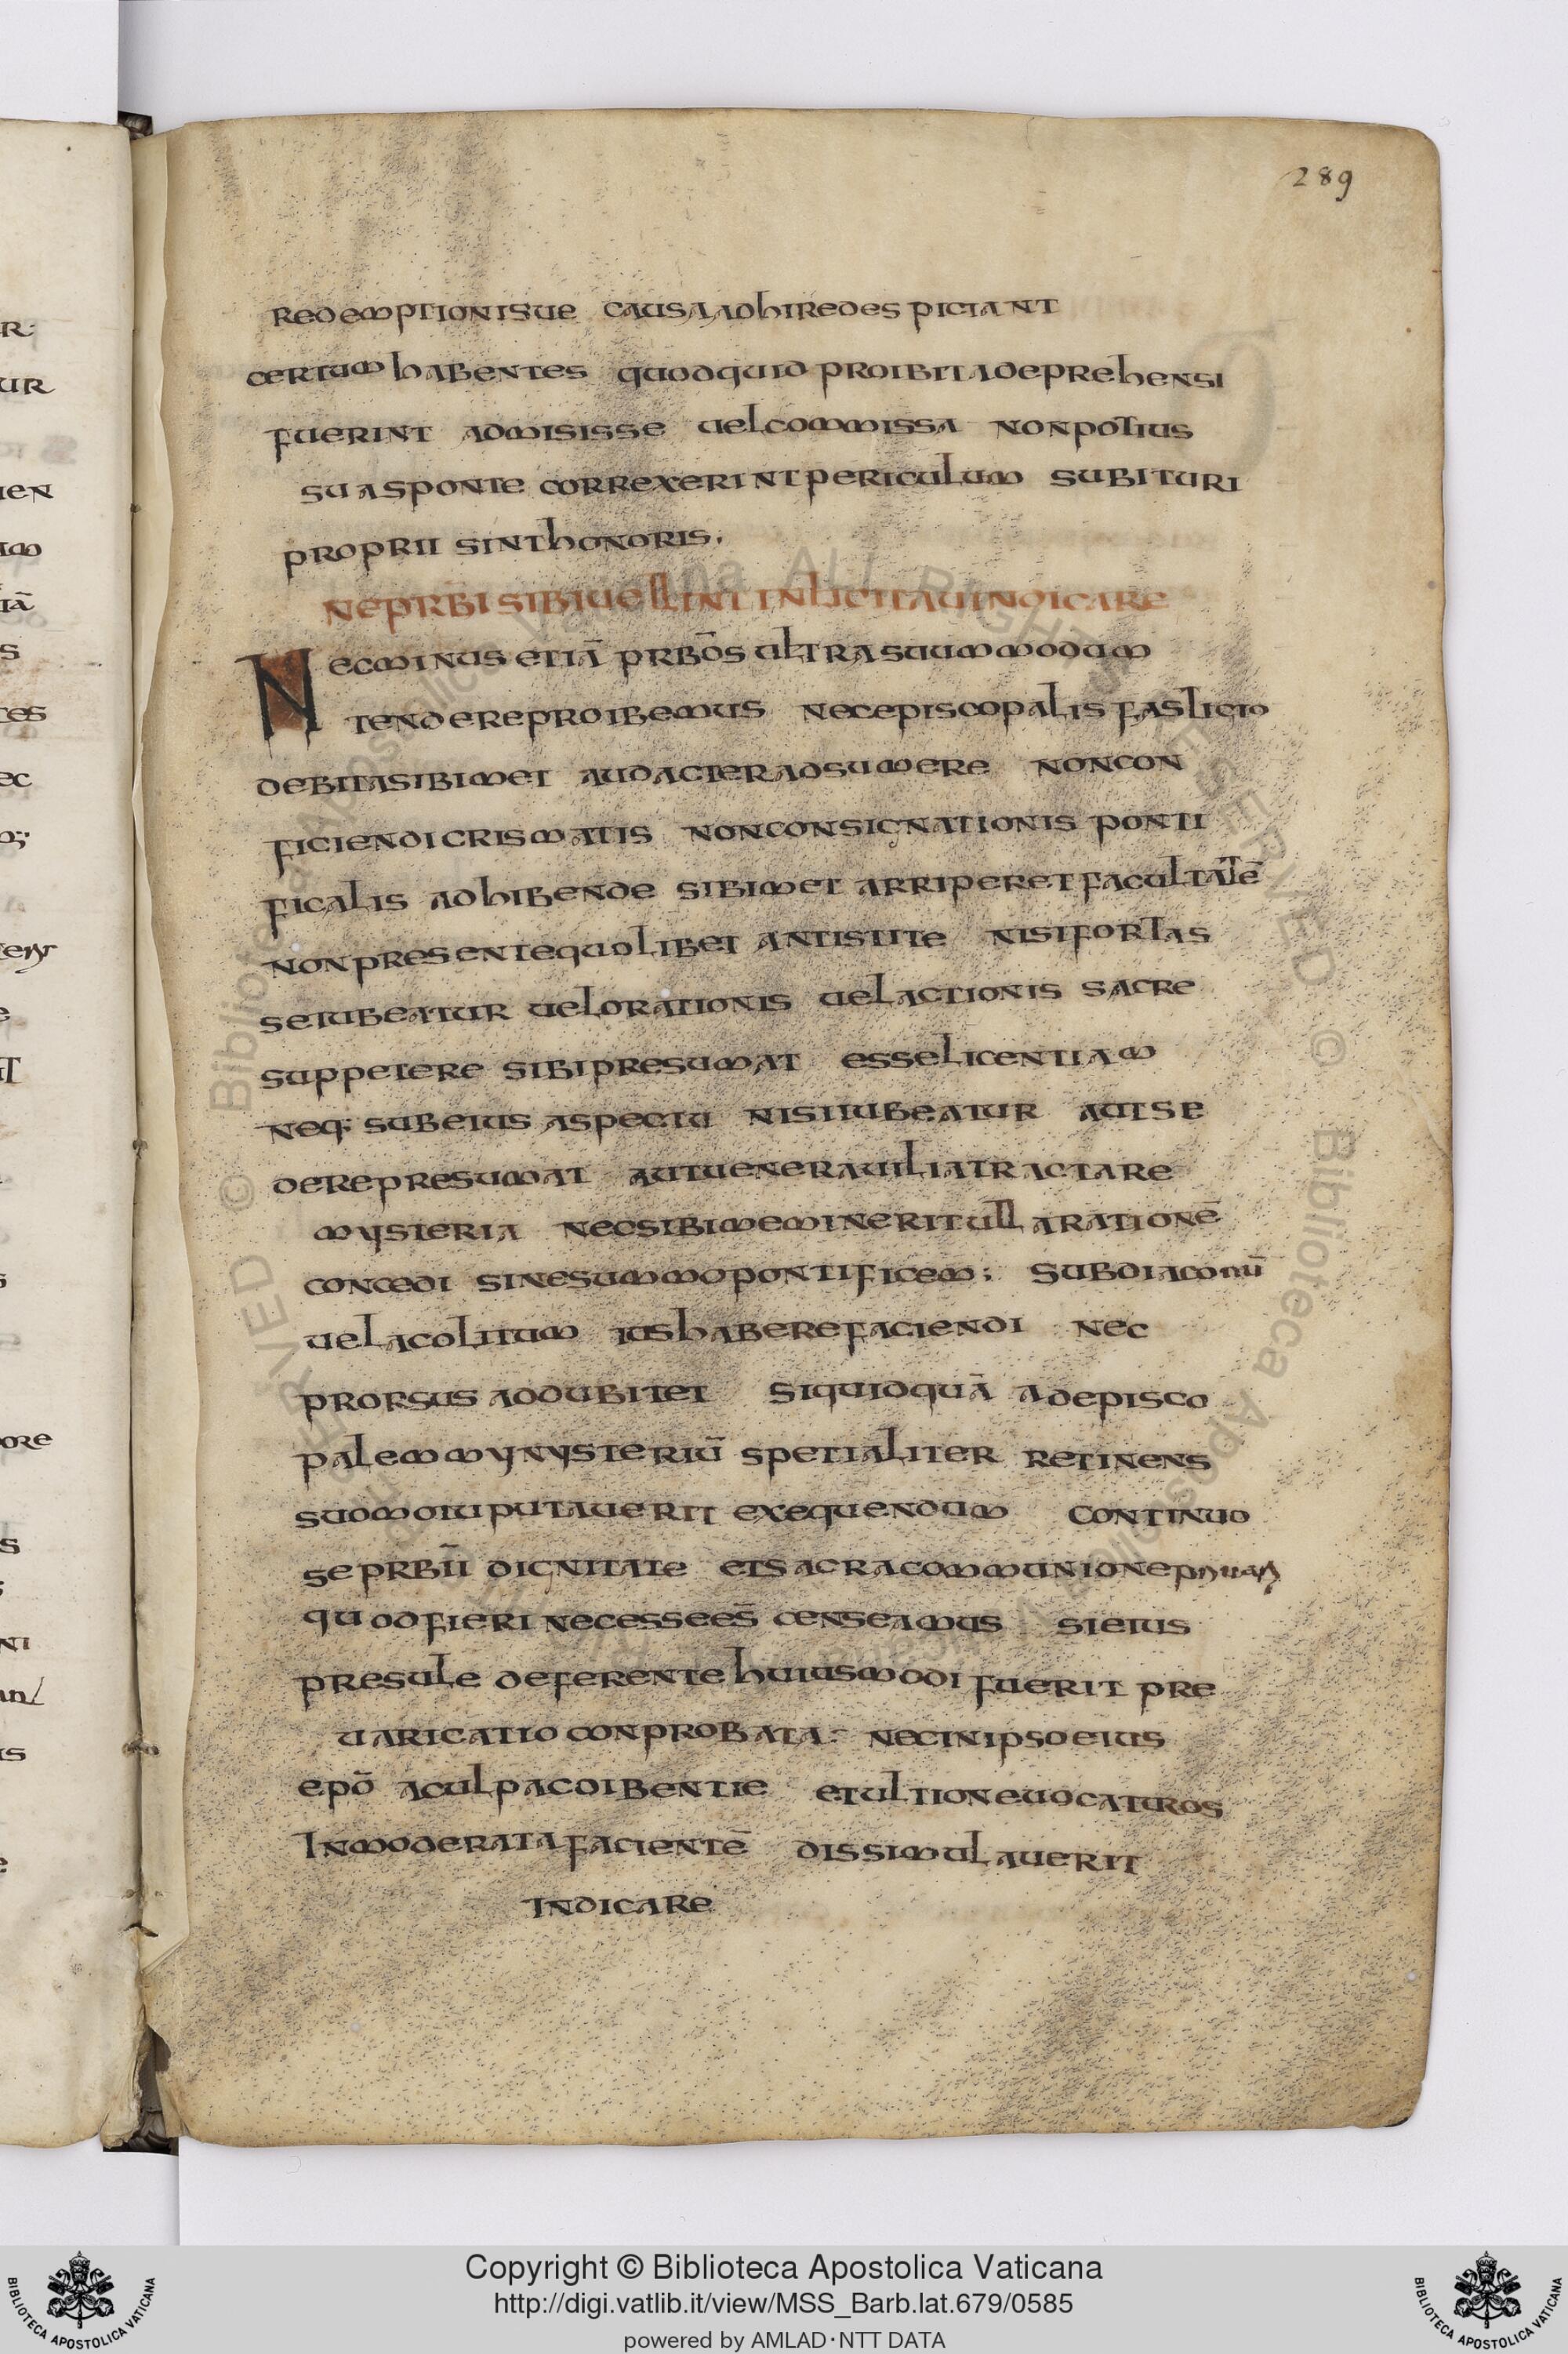 289
redemptionisue causa adhire despiciant
certum habentes quod quid proibita deprehensi
fuerint admisisse uel commissa non potius
sua sponte correxerint periculum subituri
proprii sint honoris.
Ne prb̄i sibi uellint inlicita uindicare
Nec minus etiā prb̄os ultra suum modum
tendere proibemus nec episcopalis faslicio
debita sibimet audacter adsumere non con
ficiendi crismatis non consignationis ponti
ficalis adhibende sibimet arriperet facultatē
non presente quolibet antistite nisi fortas
se iubeatur uel orationis uel actionis sacre
suppetere sibi presumat esse licentiam
neq; sub eius aspectu nisi iubeatur aut se
dere presumat aut uenerauilia tractare
mysteria nec sibi meminerit ulla rationē
concedi sine summo pontificem; Subdiaconū
uel acolitum ius habere faciendi nec
prorsus addubitet si quid quā ad episco
palem mynysteriū spetialiter retinens
suo motu putauerit exequendum continuo
se prb̄ii dignitate et sacra communione priuari
quod fieri necesse eēs censeamus si eius
presule deferente huiusmodi fuerit pre
uaricatio conprobata: nec in ipso eius
epō a culpa coibentie et ultione uocaturos
Inmoderata facientē dissimulauerit
Indicare
Copyright © Biblioteca Apostolica Vaticana
http://digi.vatlib.it/view/MSS_Barb.lat.679/0585
powered by AMLAD·NTT DATA
BIBLIOTECA APOSTOLICA VATICANA
BIBLIOTECA APOSTOLICA VATICANA